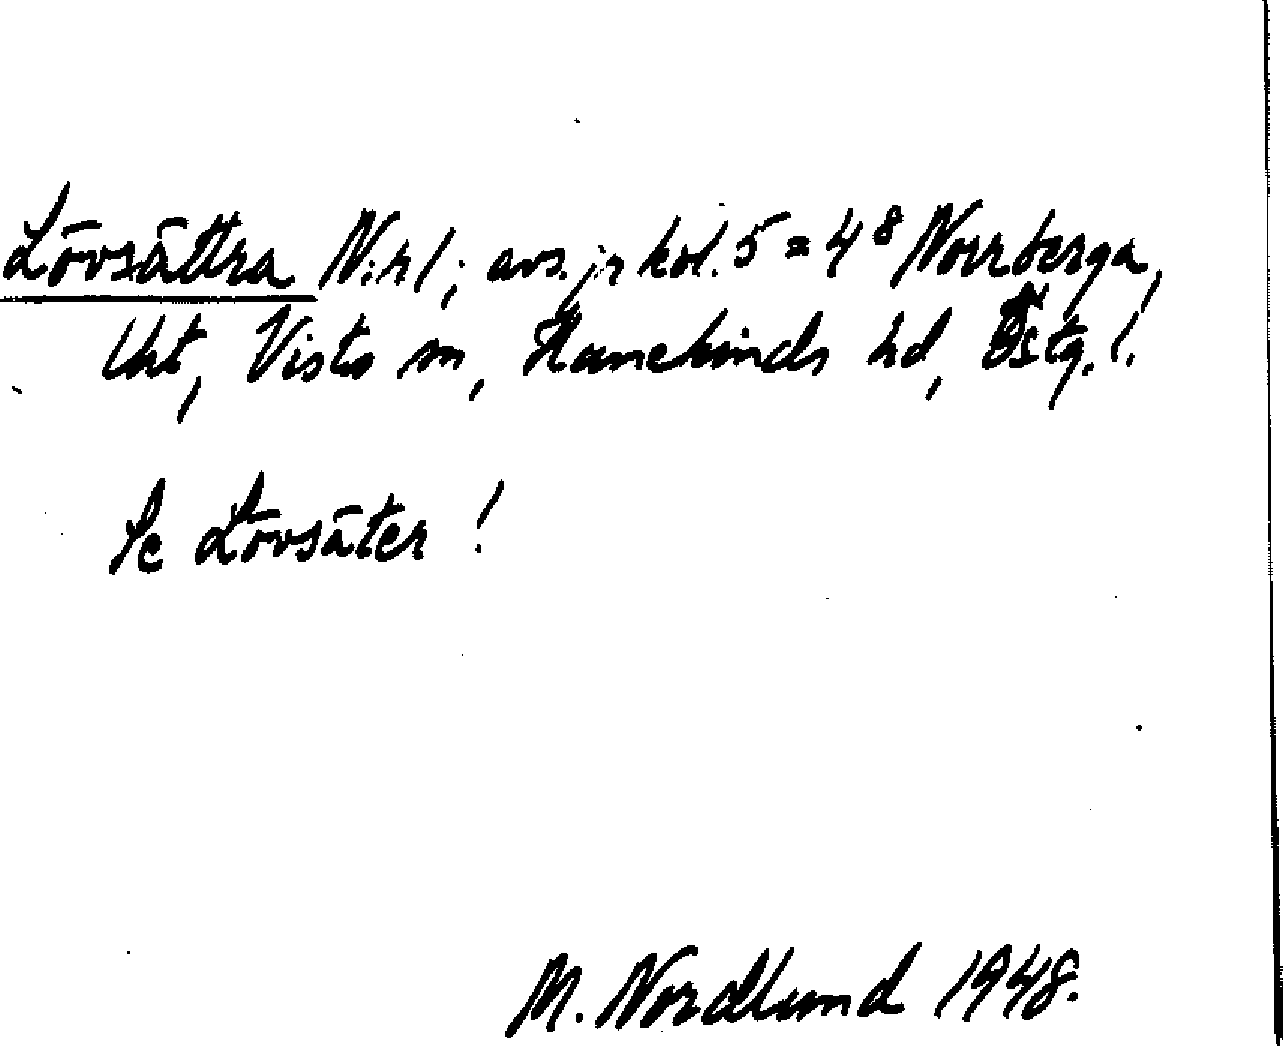 Lövsättra N:r 1; avs. jr kol. 5 = 4⁸ Norrberga,
Uht, Vists sn, Hanekinds hd, Östg. l.
Se Lövsäter!
M. Nordlund 1948.